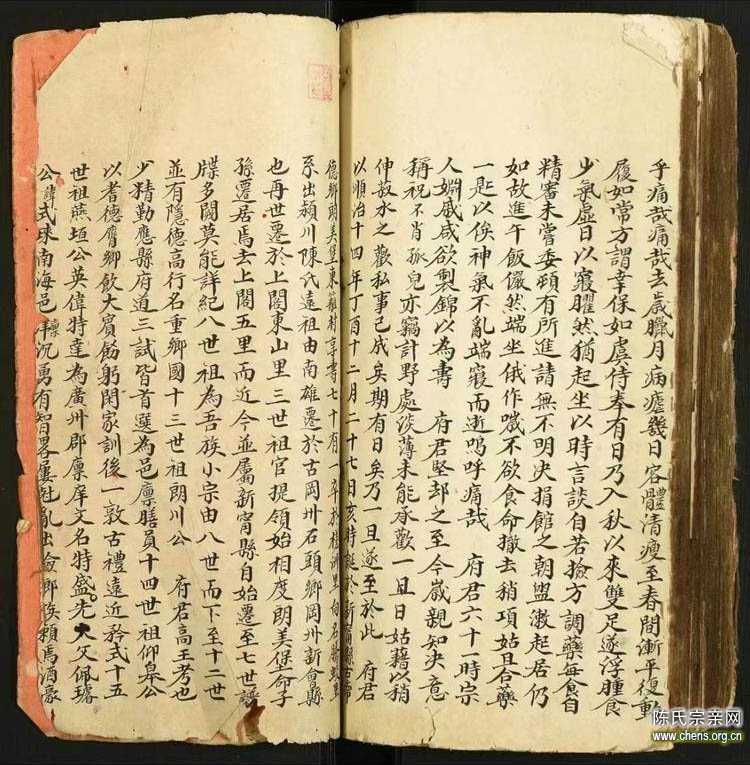 乎痛哉痛哉去歲臘月病瘧幾日客體清瘦至春間漸平復動
履如常方謂幸保如虞侍奉有日乃入秋以來雙足遂浮腫食
少氣虛日以寢臞然猶起坐以時言談自若撿方調藥每食自
精審未嘗委頓有所進請無不明決捐館之朝盥漱起居仍
如故進午飯儼然端坐俄作噦不欲食命撤去稍項姑且合藥
一匙以俟神氣不亂端寢而逝嗚呼痛哉 府君六十一時宗
人姻戚咸欲製錦以為壽 府君堅却之至今歲親知決意
稱祝不肖孤兒亦竊計野處淡薄未能承歡一旦日姑藉以稍
伸菽水之歡私事已成矣期有日矣乃一旦遂至於此 府君
以順治十四年丁酉十二月二十七日亥時誕於新甯縣古常
德鄉朗美堡東村享壽七十有一卒於里
系出潁川陳氏遠祖由南雄遷於古岡州石頭鄉岡州新會縣
也再世遷於上閣東山里三世祖官提領始相度朗美堡命子
孫遷居焉去上閣五里而近今並屬新甯縣自始遷至七世譜
牒多闕莫能詳紀八世祖為吾族小宗由八世而下至十二世
並有隱德高行名重鄉國十三世祖朗川公 府君高王考也
少精勤應縣府道三試皆首選為邑廩膳員十四世祖仰皋公
以耆德膺鄉飲大賓飭躬閑家訓後一敦古禮遠近矜式十五
世祖燕垣公英偉特達為廣州郡廩庠文名特盛先大父佩璿
公諱式球南海邑庠廩沉勇有智畧屢亂出險鄉族賴焉酒豪
陈氏宗亲网
www.chens.org.cn